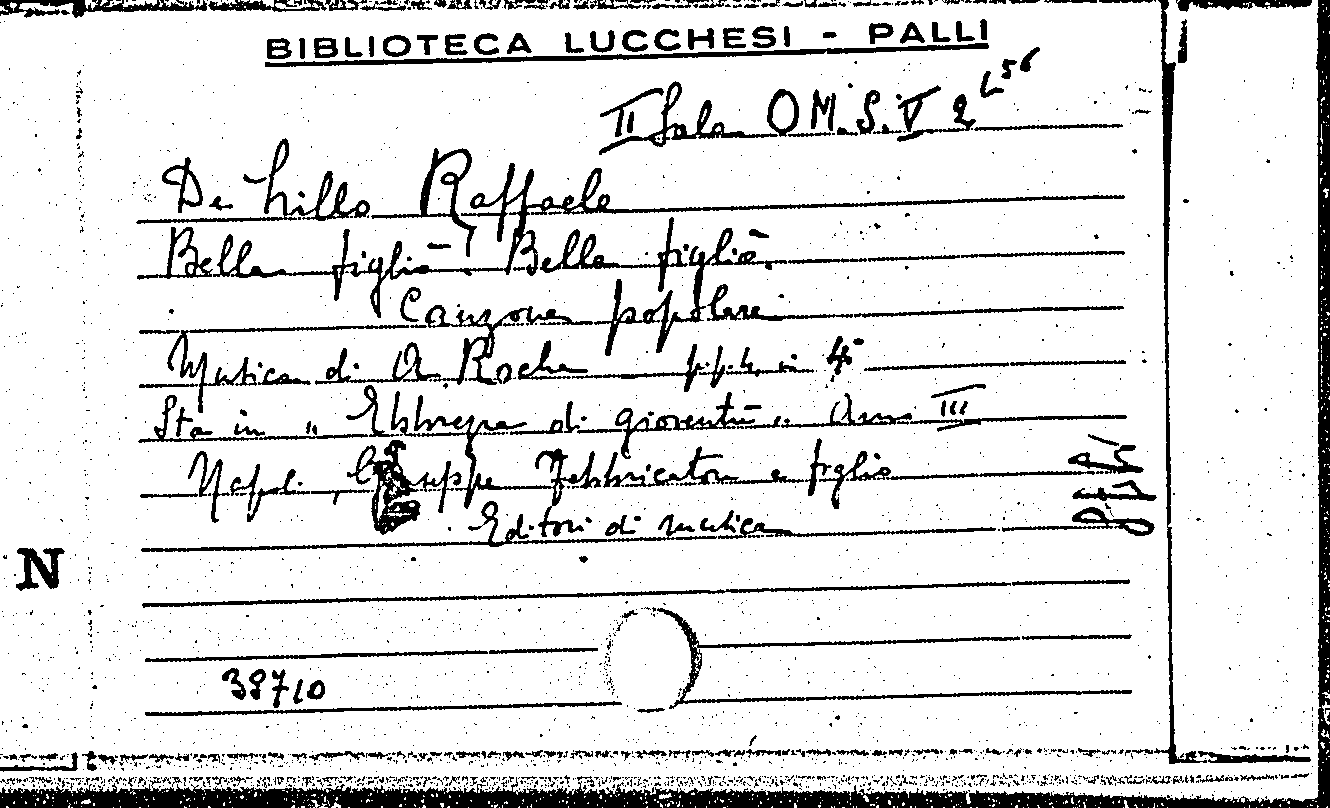 BIBLIOTECA LUCCHESI - PALLI
II Sala O M. S. V 2 L 56
De Lillo Raffaele
Bella figliò! Bella figliò.
Canzone popolare
Musica di A. Rocha p.p. 4, in 4°
Sta in „ Ebbrezza di gioventù „ Anno III
Napoli, Giuseppe Fabbricatore e figlio
Editori di musica
N
38710